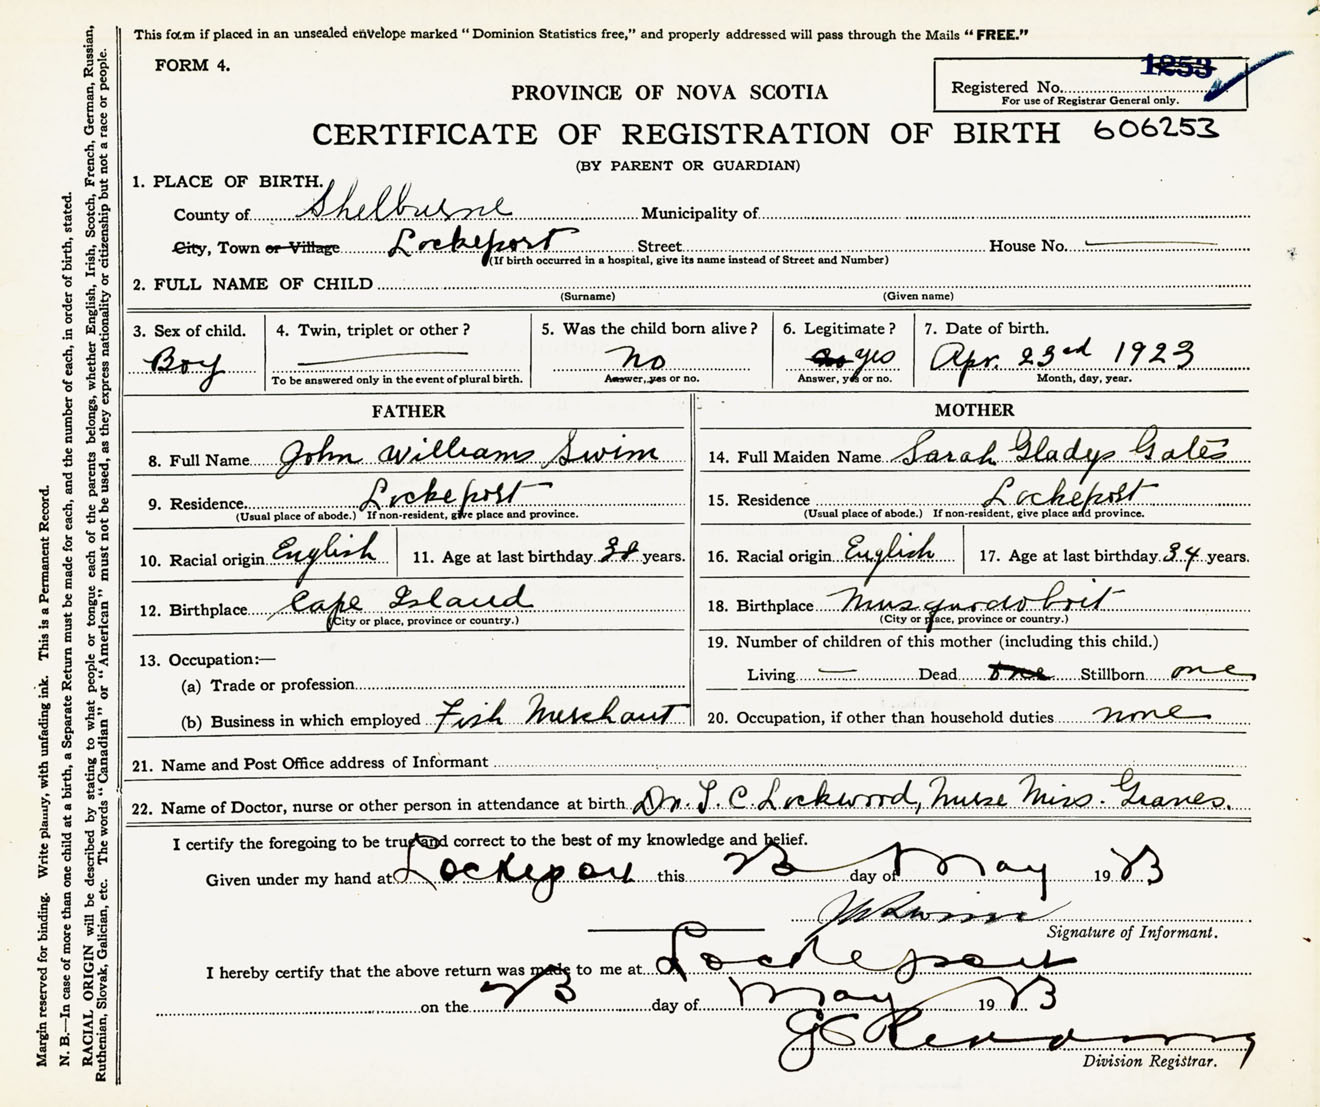 This form if placed in an unsealed envelope marked "Dominion Statistics free," and properly addressed will pass through the Mails "FREE."
FORM 4.
1253
Registered No.
For use of Registrar General only.
PROVINCE OF NOVA SCOTIA
CERTIFICATE OF REGISTRATION OF BIRTH 606253
(BY PARENT OR GUARDIAN)
1. PLACE OF BIRTH.
County of Shelburne Municipality of
City, Town or Village Lockeport Street House No.
(If birth occurred in a hospital, give its name instead of Street and Number)
2. FULL NAME OF CHILD
(Surname) (Given name)
3. Sex of child. 4. Twin, triplet or other? 5. Was the child born alive? 6. Legitimate? 7. Date of birth.
Boy No no yes Apr. 23rd 1923
To be answered only in the event of plural birth. Answer, yes or no. Answer, yes or no. Month, day, year.
FATHER MOTHER
8. Full Name John Williams Swim 14. Full Maiden Name Sarah Gladys Gates
9. Residence Lockeport 15. Residence Lockeport
(Usual place of abode.) If non-resident, give place and province. (Usual place of abode.) If non-resident, give place and province.
10. Racial origin English 11. Age at last birthday 38 years. 16. Racial origin English 17. Age at last birthday 34 years.
12. Birthplace Cape Island 18. Birthplace Musquodoboit
(City or place, province or country.) (City or place, province or country.)
19. Number of children of this mother (including this child.)
13. Occupation:—
Living — Dead one Stillborn one
(a) Trade or profession
(b) Business in which employed Fish Merchant 20. Occupation, if other than household duties none
21. Name and Post Office address of Informant
22. Name of Doctor, nurse or other person in attendance at birth Dr. L. C. Lockwood, Nurse Miss. Graves.
I certify the foregoing to be true and correct to the best of my knowledge and belief.
Given under my hand at Lockeport this 23 day of May 1923
JW Swim
Signature of Informant.
I hereby certify that the above return was made to me at Lockeport
on the 23 day of May 1923
Division Registrar.
Margin reserved for binding. Write plainly, with unfading ink. This is a Permanent Record.
N. B.—In case of more than one child at a birth, a Separate Return must be made for each, and the number of each, in order of birth, stated.
RACIAL ORIGIN will be described by stating to what people or tongue each of the parents belongs, whether English, Irish, Scotch, French, German, Russian,
Ruthenian, Slovak, Galician, etc. The words "Canadian" or "American" must not be used, as they express nationality or citizenship but not a race or people.